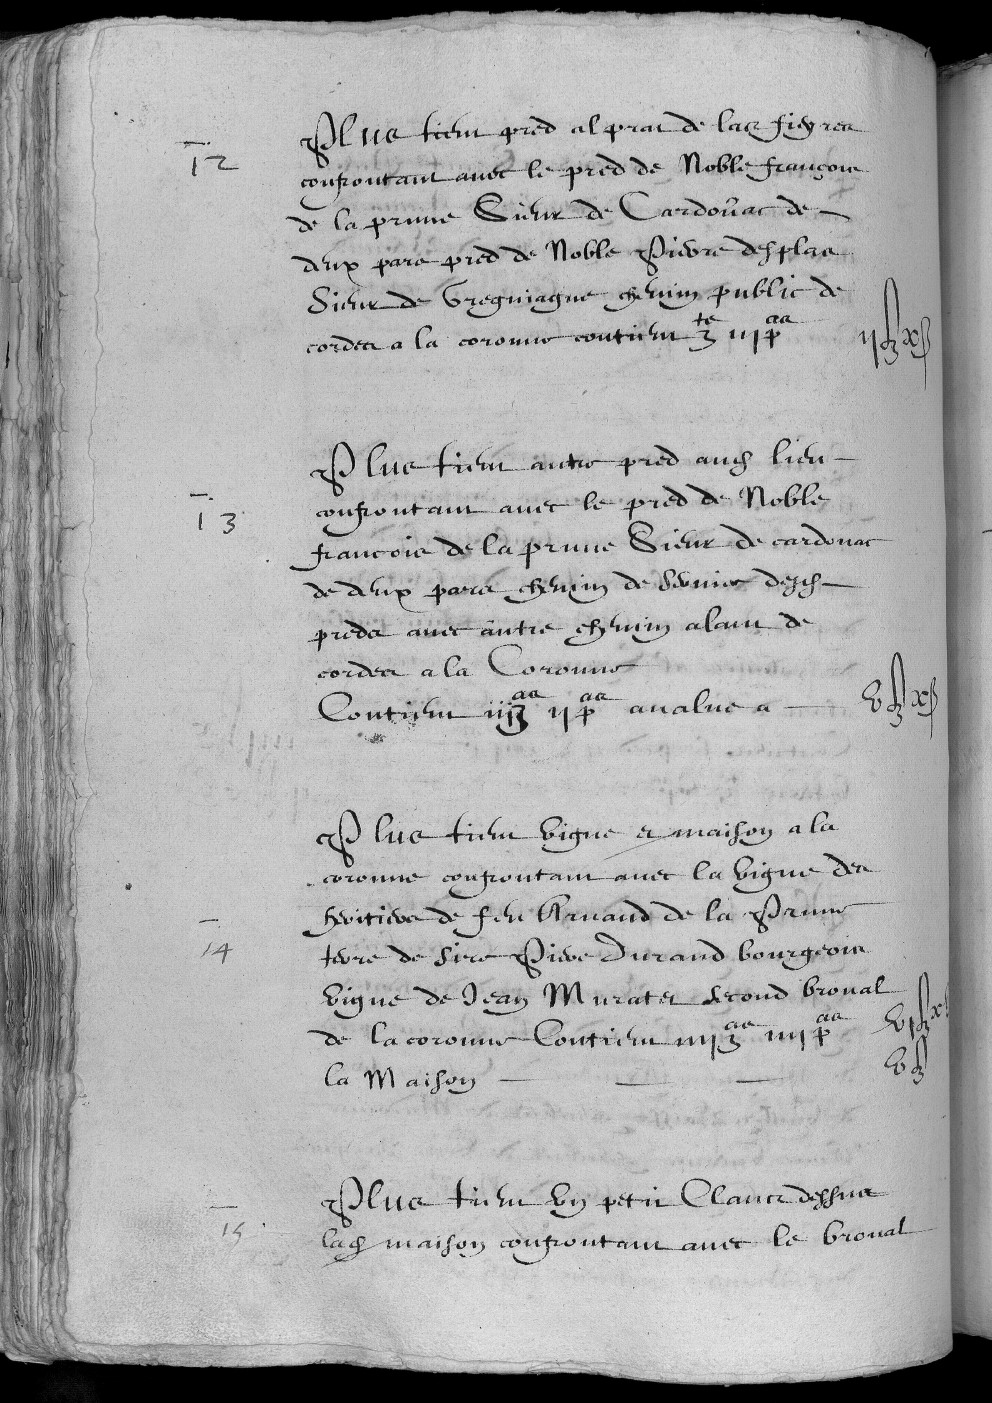 12
Plus tient pred al prat de las fieyres
confrontant avec le pred de Noble françois
de la prune Sieur de Cardonac de
deux pars pred de Noble Pierre desplas
Sieur de Gregniague chemin public de
cordes a la coronne contient 3te iii paa
ii ʃ x
13
Plus tient autre pred aud lieu
confrontant avec le pred de Noble
francois de la prune Sieur de cardonac
de deux pars chemin de servies desd
preds avec autre chemin alant de
cordes a la Coronne
Contient iii 3aa ii paa avalue a
v ʃ x
14
Plus tient vigne et maison a la
coronne confrontant avec la vigne des
heritiers de feu Arnaud de la Prune
terre de sire Pierre Durand bourgeois
vigne de Jean Murat et second broual
de la coronne Contient iiii 3aa iiii paa
vi ʃ x
la Maison
v ʃ
15
Plus tient un petit Claux dessus
lad maison confrontant avec le broual